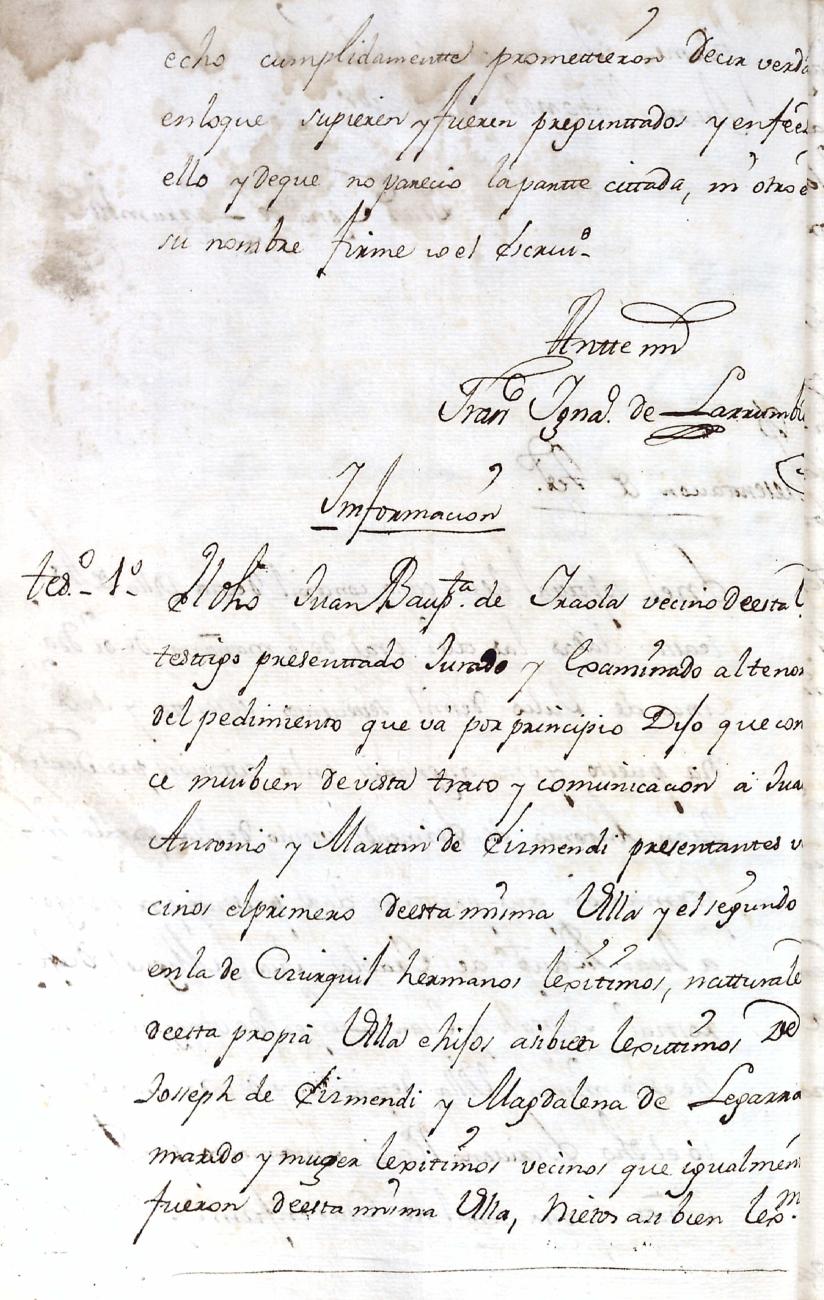 echo cumplidamentte promettieron Decir verda
enloque supieren y fueren preguntados y en fée
ello y de que no parecio laparte cittada, ni otro e
su nombre firme io el Escriu.º
Antte mi
Fran.co Igna.º de Larrumbi
Informacion
tes.º 1.º El dho Juan Baup.ta de Iraola vecino deesta V
testtigo presenttado Jurado y Examinado altenor
del pedimiento que vá por principio Dijo que con
ce muibien de vista trato y comunicacion á Jua
Antonio y Marttin de Eizmendi presentantes v
cinos elprimero deesta misma Villa y elsegundo
enla de Cizurquil hermanos lexitimos, natturale
deesta propia Villa e hijos asibien lexittimos de
Josseph de Eizmendi y Magdalena de Legarra
marido y muger lexitimos vecinos que igualmen
fueron deesta misma Villa, Nietos asi bien lex.m